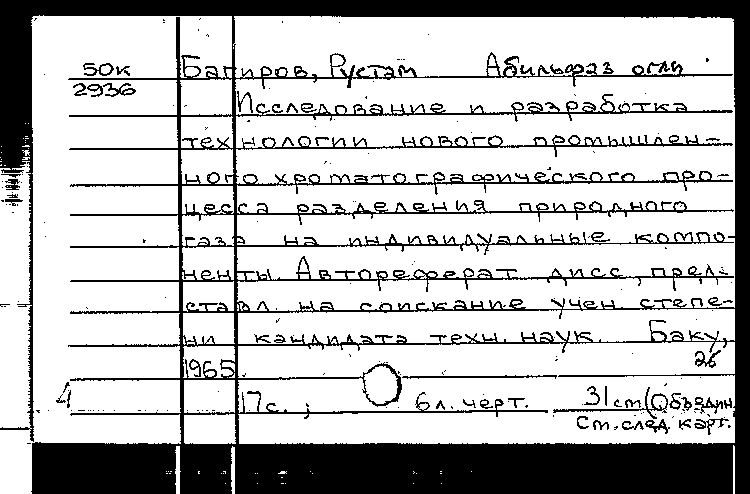 50к Багиров, Рустам Абильфаз оглы
2936
Исследование и разработка
технологии нового промышлен-
ного хроматографического про-
цесса разделения природного
газа на индивидуальные компо-
ненты. Автореферат дисс., пред-
ставл. на соискание учен. степе-
ни кандидата техн. наук. Баку,
1965. 26
4 17с.; 6л. черт. 31см (Объедин.
См. след. карт.